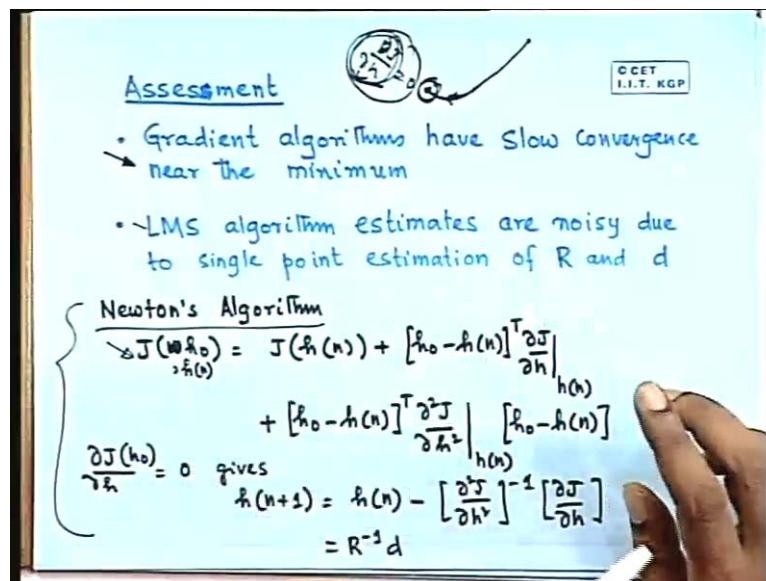 ∂J/∂h = 0
Assessment
© CET
I.I.T. KGP
• Gradient algorithms have slow convergence
near the minimum
• LMS algorithm estimates are noisy due
to single point estimation of R and d
Newton's Algorithm
J(h₀) = J(h(n)) + [h₀ - h(n)]ᵀ ∂J/∂h |h(n)
, h(n)
+ [h₀ - h(n)]ᵀ ∂²J/∂h² |h(n) [h₀ - h(n)]
∂J(h₀)/∂h = 0 gives
h(n+1) = h(n) - [∂²J/∂h²]⁻¹ [∂J/∂h]
= R⁻¹d